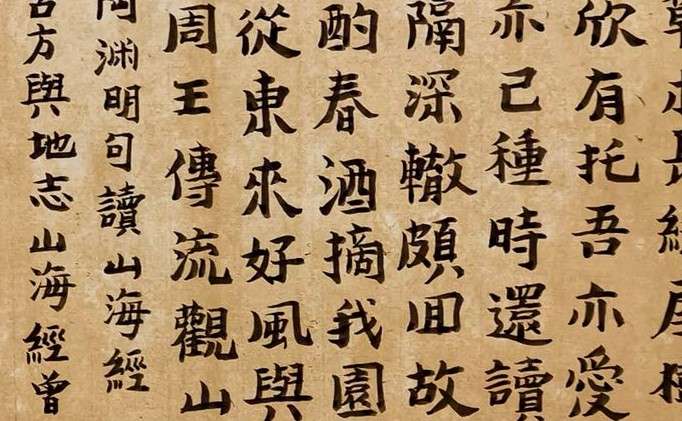 欣有托吾亦愛
亦己種時還讀
隔深轍頗囬故
酌春酒摘我園
從東來好風與
周王傳流觀山
陶渊明句讀山海經
方與地志山海經曾